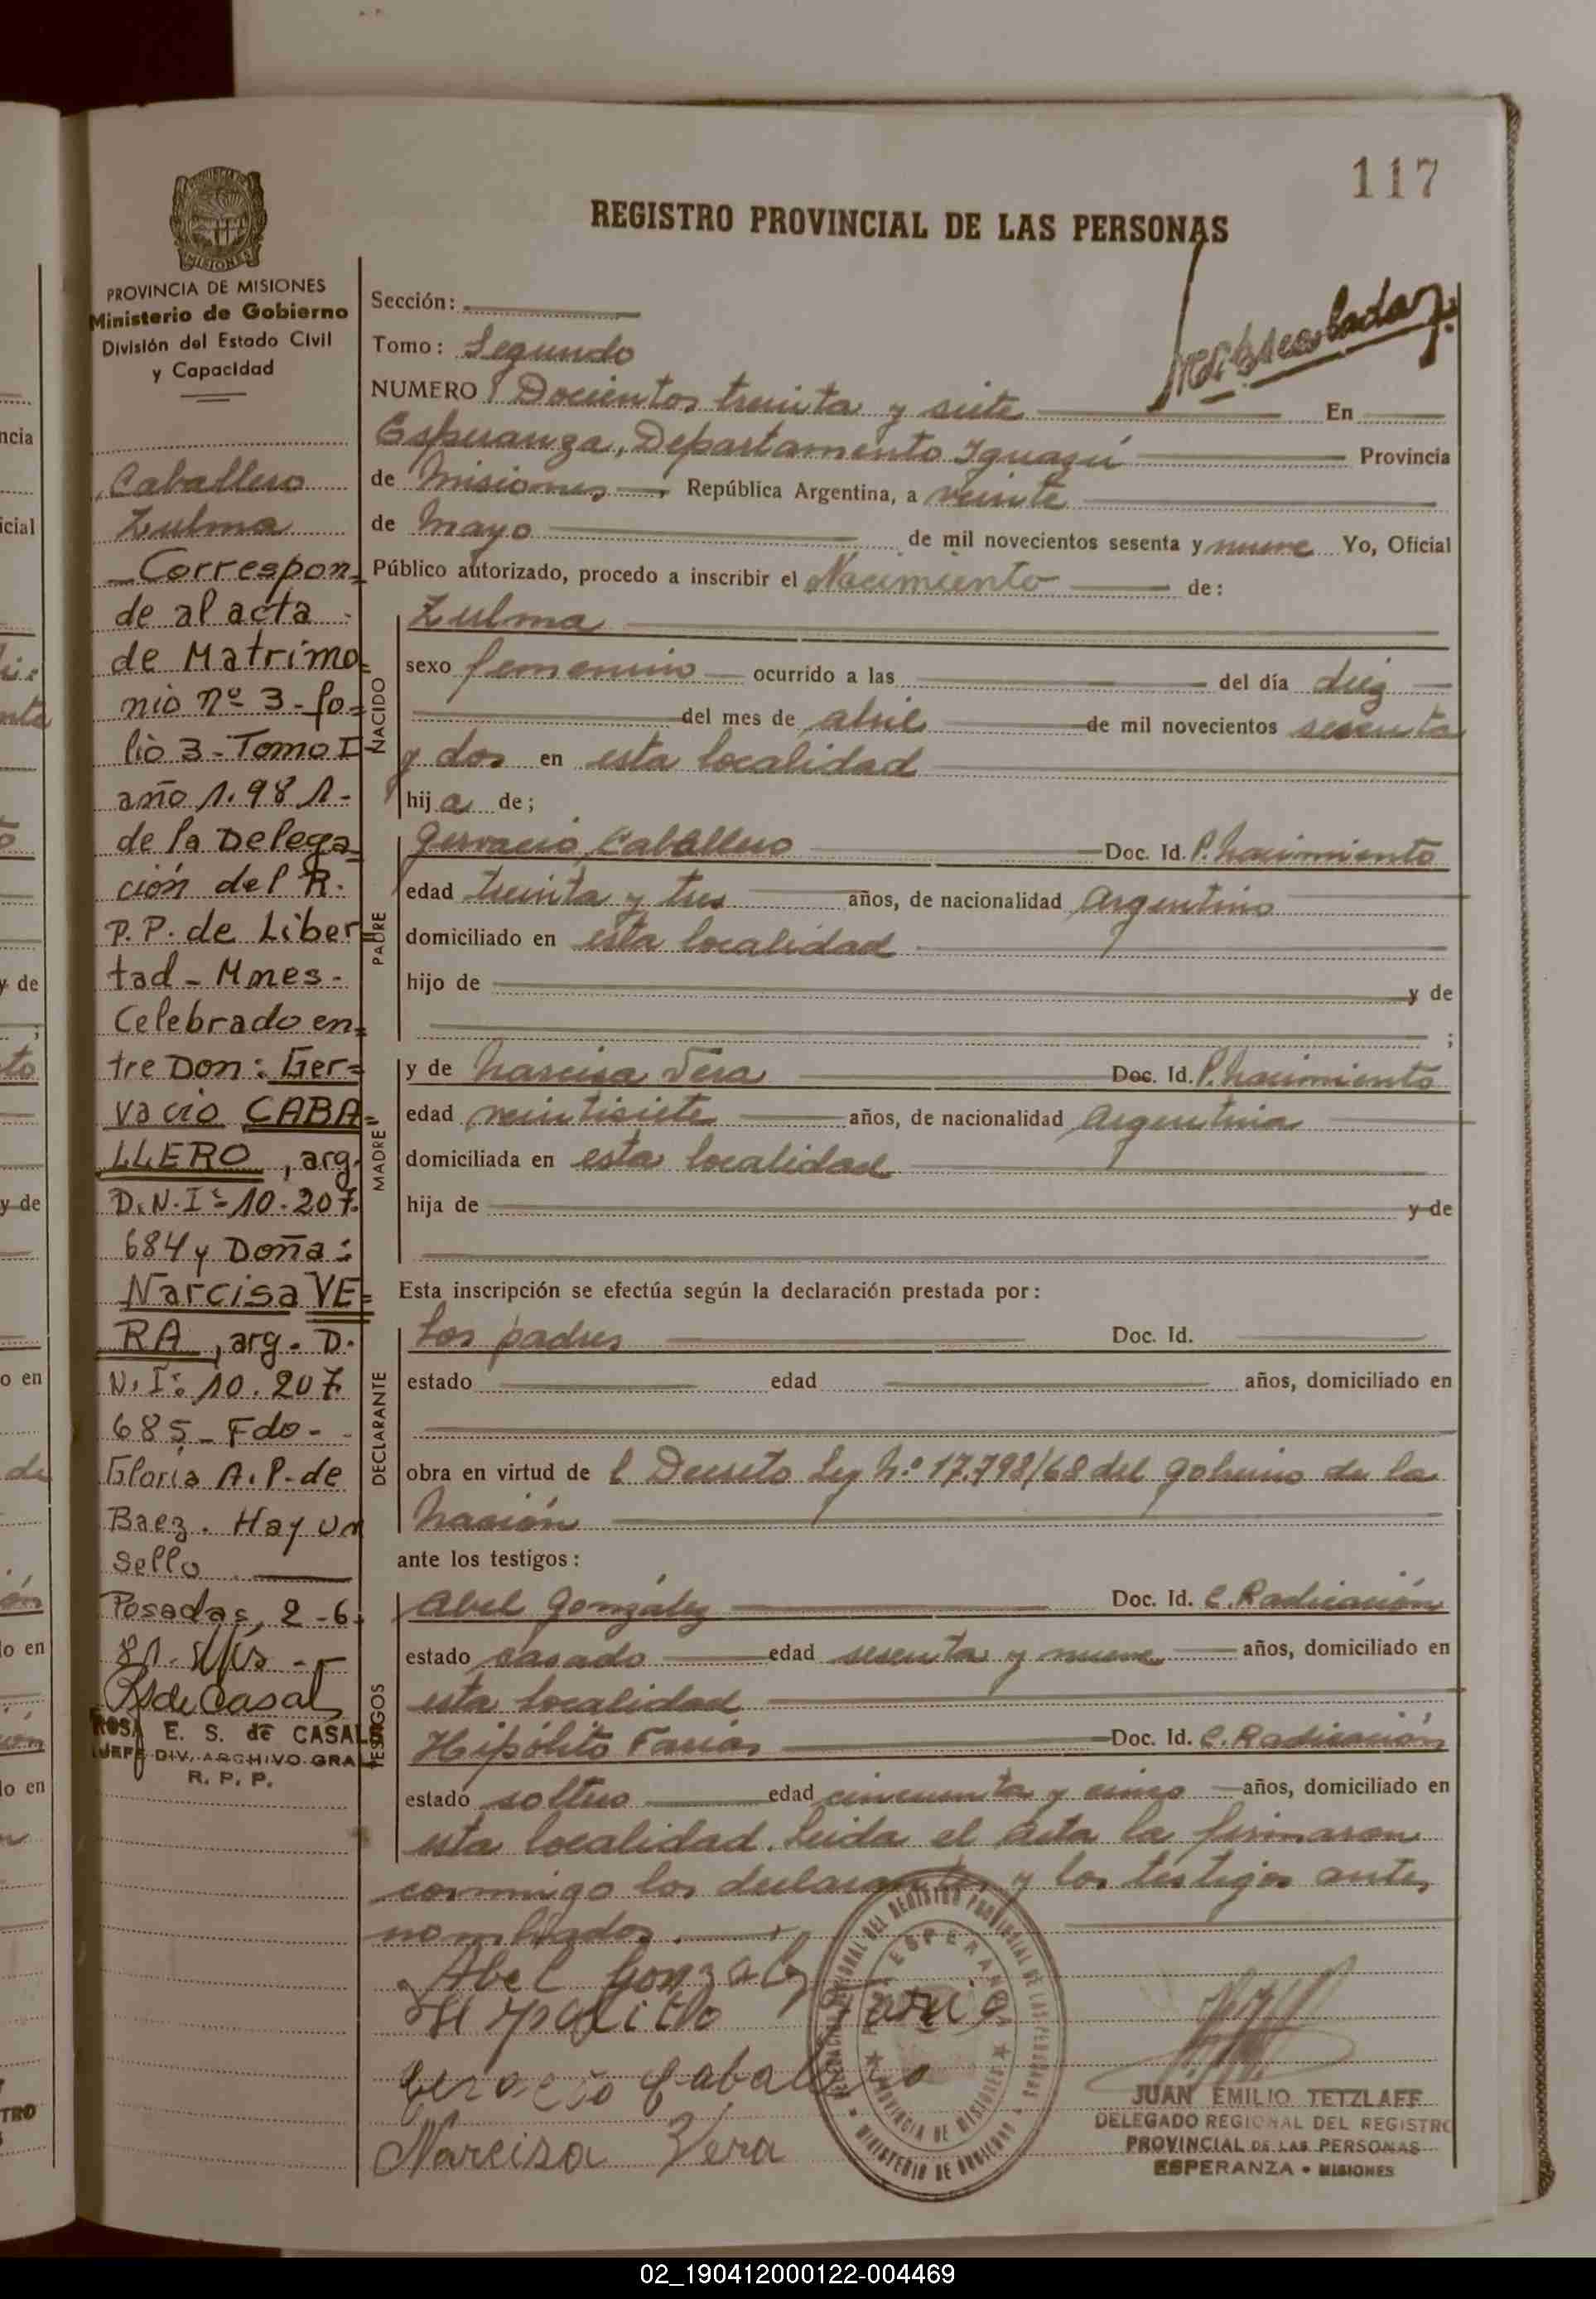 117
REGISTRO PROVINCIAL DE LAS PERSONAS
MISIONES
PROVINCIA DE MISIONES
Ministerio de Gobierno
División del Estado Civil
y Capacidad
Caballero
Zulma
Correspon=
de al acta
de Matrimo=
nio nº 3 - fo=
lio 3 - Tomo I-
año 1.981-
de la Delega=
ción del R.
P.P. de Liber=
tad - Mnes-
Celebrado en=
tre Don: Ger=
vacio CABA=
LLERO, arg.
D.N.I: 10.207.
684 y Doña:
Narcisa VE=
RA, arg. D.
N.I: 10.207
685 - Fdo -
Gloria A.P. de
Baez. Hay un
Sello
Posadas, 2-6-
81.
RSdeCasals
ROSA E. S. de CASALS
JEFE DIV. ARCHIVO GRAL
R. P. P.
Sección:
Tomo: Segundo
NUMERO Docientos treinta y siete En
Esperanza, Departamento Iguazú Provincia
de Misiones, República Argentina, a veinte
de Mayo de mil novecientos sesenta y nueve Yo, Oficial
Público autorizado, procedo a inscribir el Nacimiento de:
NACIDO
Zulma
sexo femenino ocurrido a las del día diez
del mes de abril de mil novecientos sesenta
y dos en esta localidad
hija de;
PADRE
Gervacio Caballero Doc. Id. P. nacimiento
edad treinta y tres años, de nacionalidad Argentino
domiciliado en esta localidad
hijo de y de
;
MADRE
y de Narcisa Vera Doc. Id. P. nacimiento
edad veintisiete años, de nacionalidad Argentina
domiciliada en esta localidad
hija de y de
Esta inscripción se efectúa según la declaración prestada por:
DECLARANTE
Los padres Doc. Id.
estado edad años, domiciliado en
obra en virtud de l Decreto Ley Nº 17.798/68 del gobierno de la
Nación
ante los testigos:
TESTIGOS
Abel González Doc. Id. C. Radicación
estado casado edad sesenta y nueve años, domiciliado en
esta localidad
Hipólito Farias Doc. Id. C. Radicación
estado soltero edad cincuenta y cinco años, domiciliado en
esta localidad. Leida el acta la firmaron
conmigo los declarantes y los testigos antes
nombrados.
Abel Gonzalez
Hypolitto Faria
Gervacio Caballero
Narcisa Vera
ESPERANZA
PROVINCIA DE MISIONES
MINISTERIO DE GOBIERNO
JUAN EMILIO TETZLAFF
DELEGADO REGIONAL DEL REGISTRO
PROVINCIAL DE LAS PERSONAS
ESPERANZA - MISIONES
02_190412000122-004469